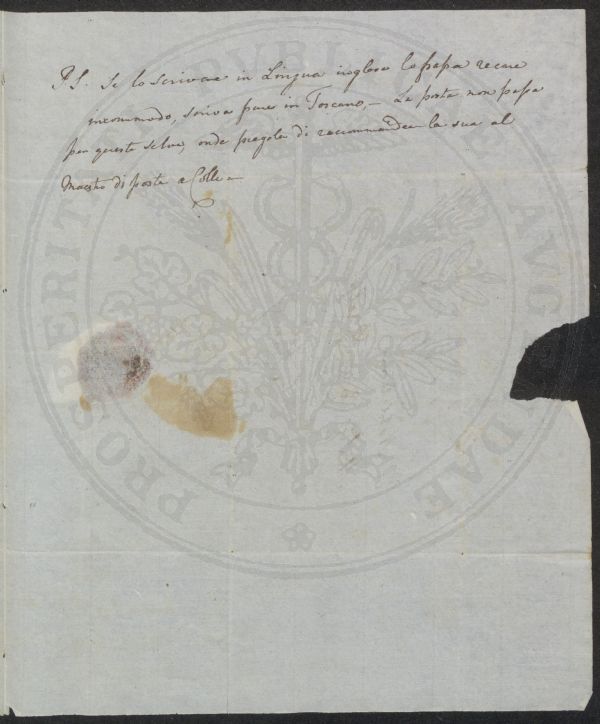 P.S. Se lo scrivere in Lingua inglese le possa recare
incommodo, scriva pure in Toscano,— La posta non passa
per queste selve, onde pregola di raccommandar la sua al
Maestro di posta a Colle—
PROSPERITATI PUBLICAE AUGENDAE